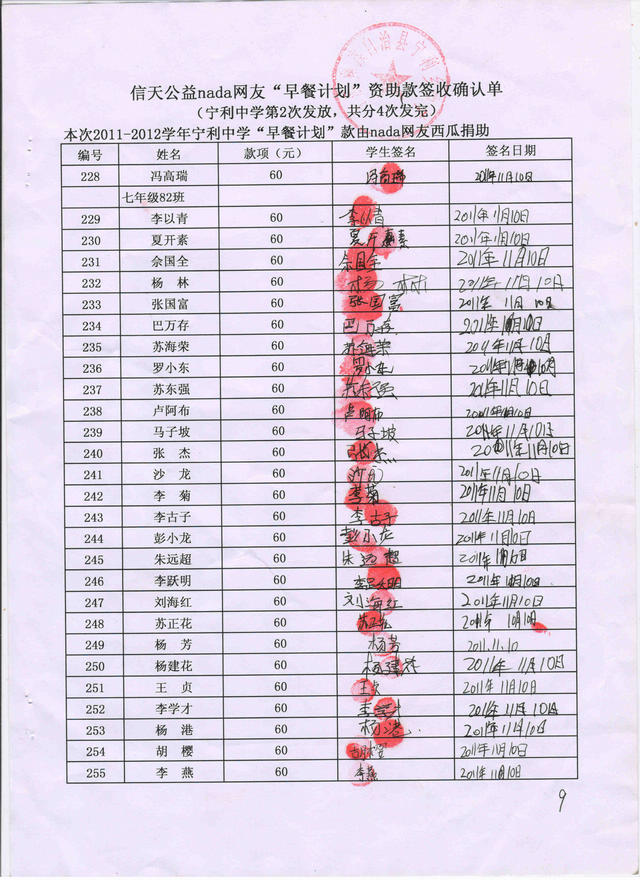 自治县宁利
信天公益nada网友“早餐计划”资助款签收确认单
（宁利中学第2次发放，共分4次发完）
本次2011-2012学年宁利中学“早餐计划”款由nada网友西瓜捐助
编号 姓名 款项（元） 学生签名 签名日期
228 冯高瑞 60 冯高瑞 2011年11月10日
七年级82班
229 李以青 60 李以青 2011年11月10日
230 夏开素 60 夏开素 2011年11月10日
231 佘国全 60 佘国全 2011年11月10日
232 杨 林 60 2011年11月10日
233 张国富 60 张国富 2011年11月10日
234 巴万存 60 巴万存 2011年11月10日
235 苏海荣 60 苏海荣 2011年11月10日
236 罗小东 60 罗小东 2011年11月10日
237 苏东强 60 苏东强 2011年11月10日
238 卢阿布 60 卢阿布 2011年11月10日
239 马子坡 60 马子坡 2011年11月10日
240 张 杰 60 张杰 2011年11月10日
241 沙 龙 60 沙龙 2011年11月10日
242 李 菊 60 李菊 2011年11月10日
243 李古子 60 李古子 2011年11月10日
244 彭小龙 60 彭小龙 2011年11月10日
245 朱远超 60 朱远超 2011年11月10日
246 李跃明 60 李跃明 2011年11月10日
247 刘海红 60 刘海红 2011年11月10日
248 苏正花 60 苏正花 2011年10月10日
249 杨 芳 60 杨芳 2011.11.10
250 杨建花 60 杨建花 2011年11月10日
251 王 贞 60 王贞 2011年11月10日
252 李学才 60 李学才 2011年11月10日
253 杨 港 60 杨港 2011年11月10日
254 胡 樱 60 胡樱 2011年11月10日
255 李 燕 60 李燕 2011年11月10日
9